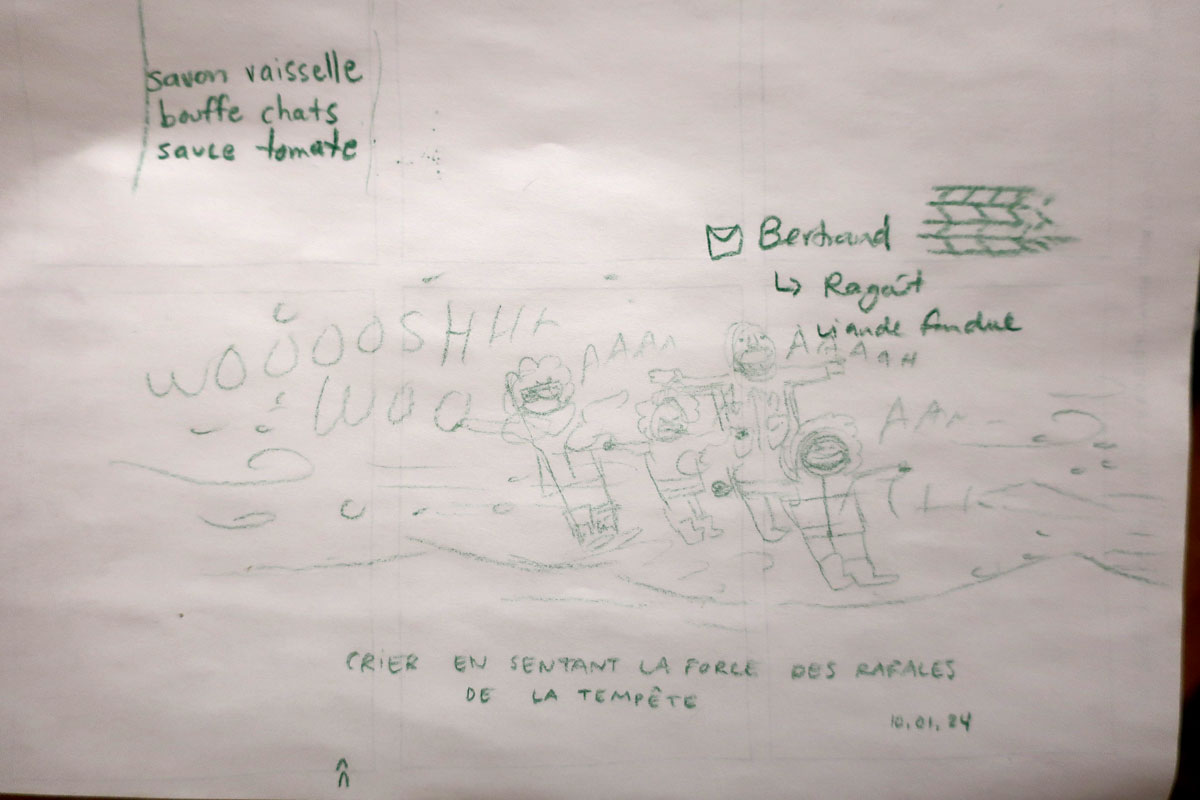 savon vaisselle
bouffe chats
sauce tomate
Bertrand
↳ Ragoût
viande fondue
WOOOOSHHH
AAAA
AAAAAH
WOO
AAA
CRIER EN SENTANT LA FORCE DES RAFALES
DE LA TEMPÊTE
10.01.24